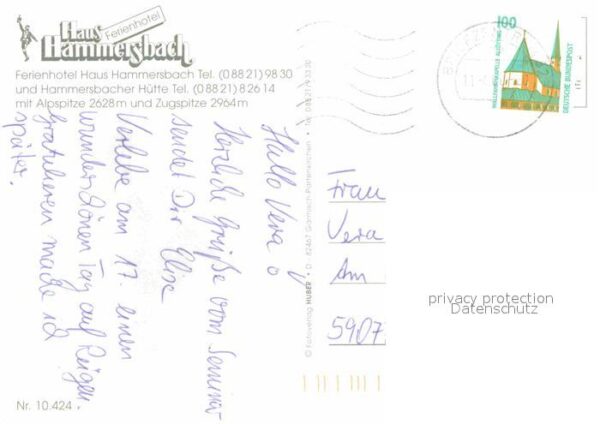 Haus
Ferienhotel
Hammersbach
Ferienhotel Haus Hammersbach Tel. (0 88 21) 98 30
und Hammersbacher Hütte Tel. (0 88 21) 8 26 14
mit Alpspitze 2628 m und Zugspitze 2964 m
Hallo Vera
Herzliche Grüße vom Seminar
sendet Dir Elise
Verlebe am 17. einen
wunderschönen Tag auf Rügen.
Gratulieren mache ich
später.
Nr. 10.424
© Fotoverlag HUBER • D - 82467 Garmisch-Partenkirchen
100
WALLFAHRTSKAPELLE ALTÖTTING
DEUTSCHE BUNDESPOST
Frau
Vera
Am
5907
privacy protection
Datenschutz